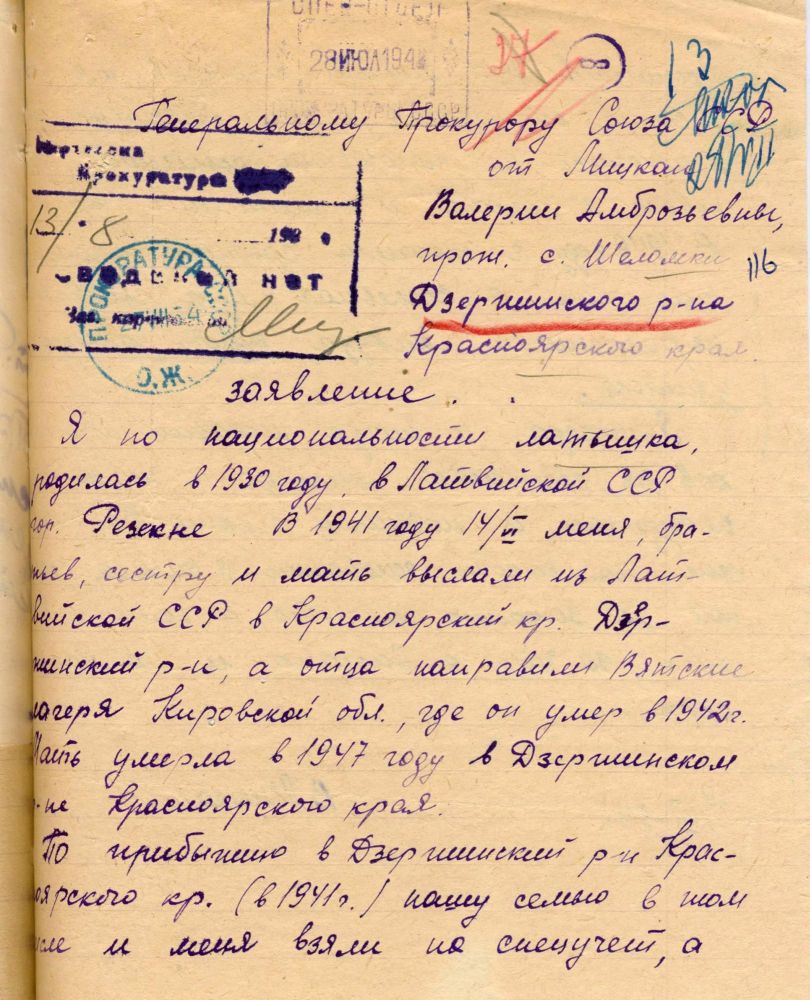 СПЕЦ-ОТДЕЛ
28 ИЮЛ 194
27
8
13
Генеральному Прокурору Союза ССР
от Мицкан
Валерии Амброзьевны,
прож. с. Шеломки
116
Дзержинского р-на
Красноярского края.
Прокуратура
13/8
195
сводений нет
ПРОКУРАТУРА
О.Ж.
заявление.
Я по национальности латышка,
родилась в 1930 году, в Латвийской ССР
гор. Резекне. В 1941 году 14/VI меня, бра-
тьев, сестру и мать выслали из Лат-
вийской ССР в Красноярский кр. Дзер-
жинский р-н, а отца направили Вятские
лагеря Кировской обл., где он умер в 1942 г.
Мать умерла в 1947 году в Дзержинском
р-не Красноярского края.
По прибытию в Дзержинский р-н Крас-
ноярского кр. (в 1941 г.) нашу семью в том
числе и меня взяли на спецучет, а